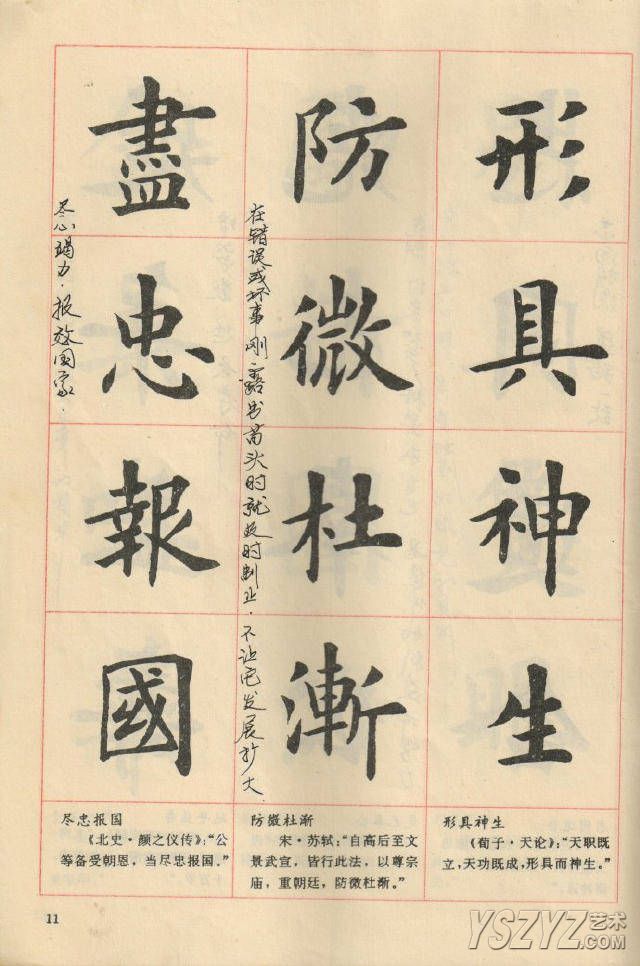 形具神生
防微杜漸
在错误或坏事刚露出苗头时就及时制止·不让它发展扩大
盡忠報國
尽心竭力·报效国家·
形具神生
《荀子·天论》：“天职既
立，天功既成，形具而神生。”
防微杜渐
宋·苏轼：“自高后至文
景武宣，皆行此法，以尊宗
庙，重朝廷，防微杜渐。”
尽忠报国
《北史·颜之仪传》：“公
等备受朝恩，当尽忠报国。”
11
YSZYZ艺术
.COM